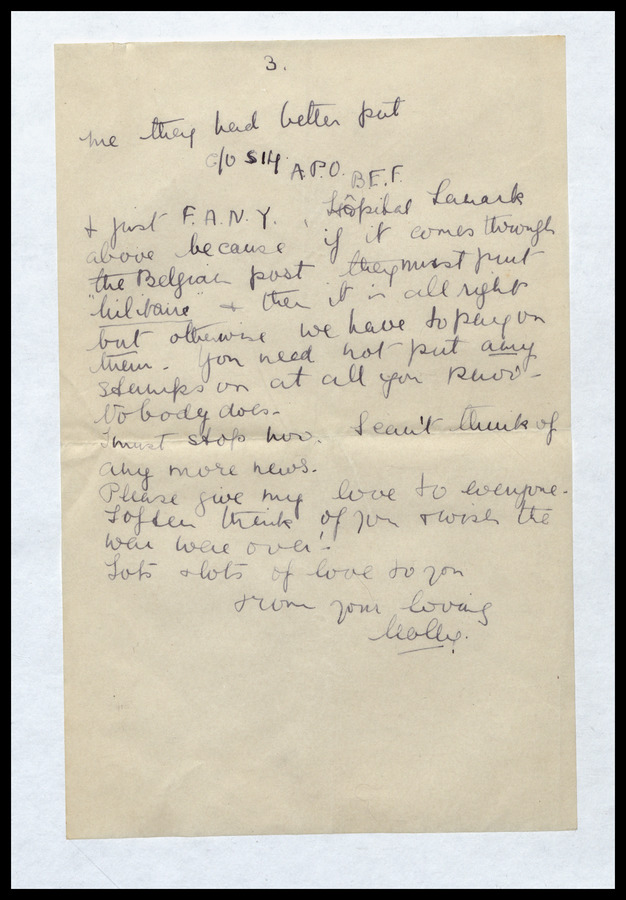 3.
me they had better put
c/o S14. A.P.O. B.E.F.
& just F.A.N.Y., Hôpital Lamark
above because if it comes through
the Belgian post they must put
"Militaire" & then it is all right
but otherwise we have to pay on
them. You need not put any
stamps on at all you know -
Nobody does -
I must stop now. I can't think of
any more news.
Please give my love to everyone -
I often think of you & wish the
war were over!
Lots & lots of love to you
from your loving
Molly.